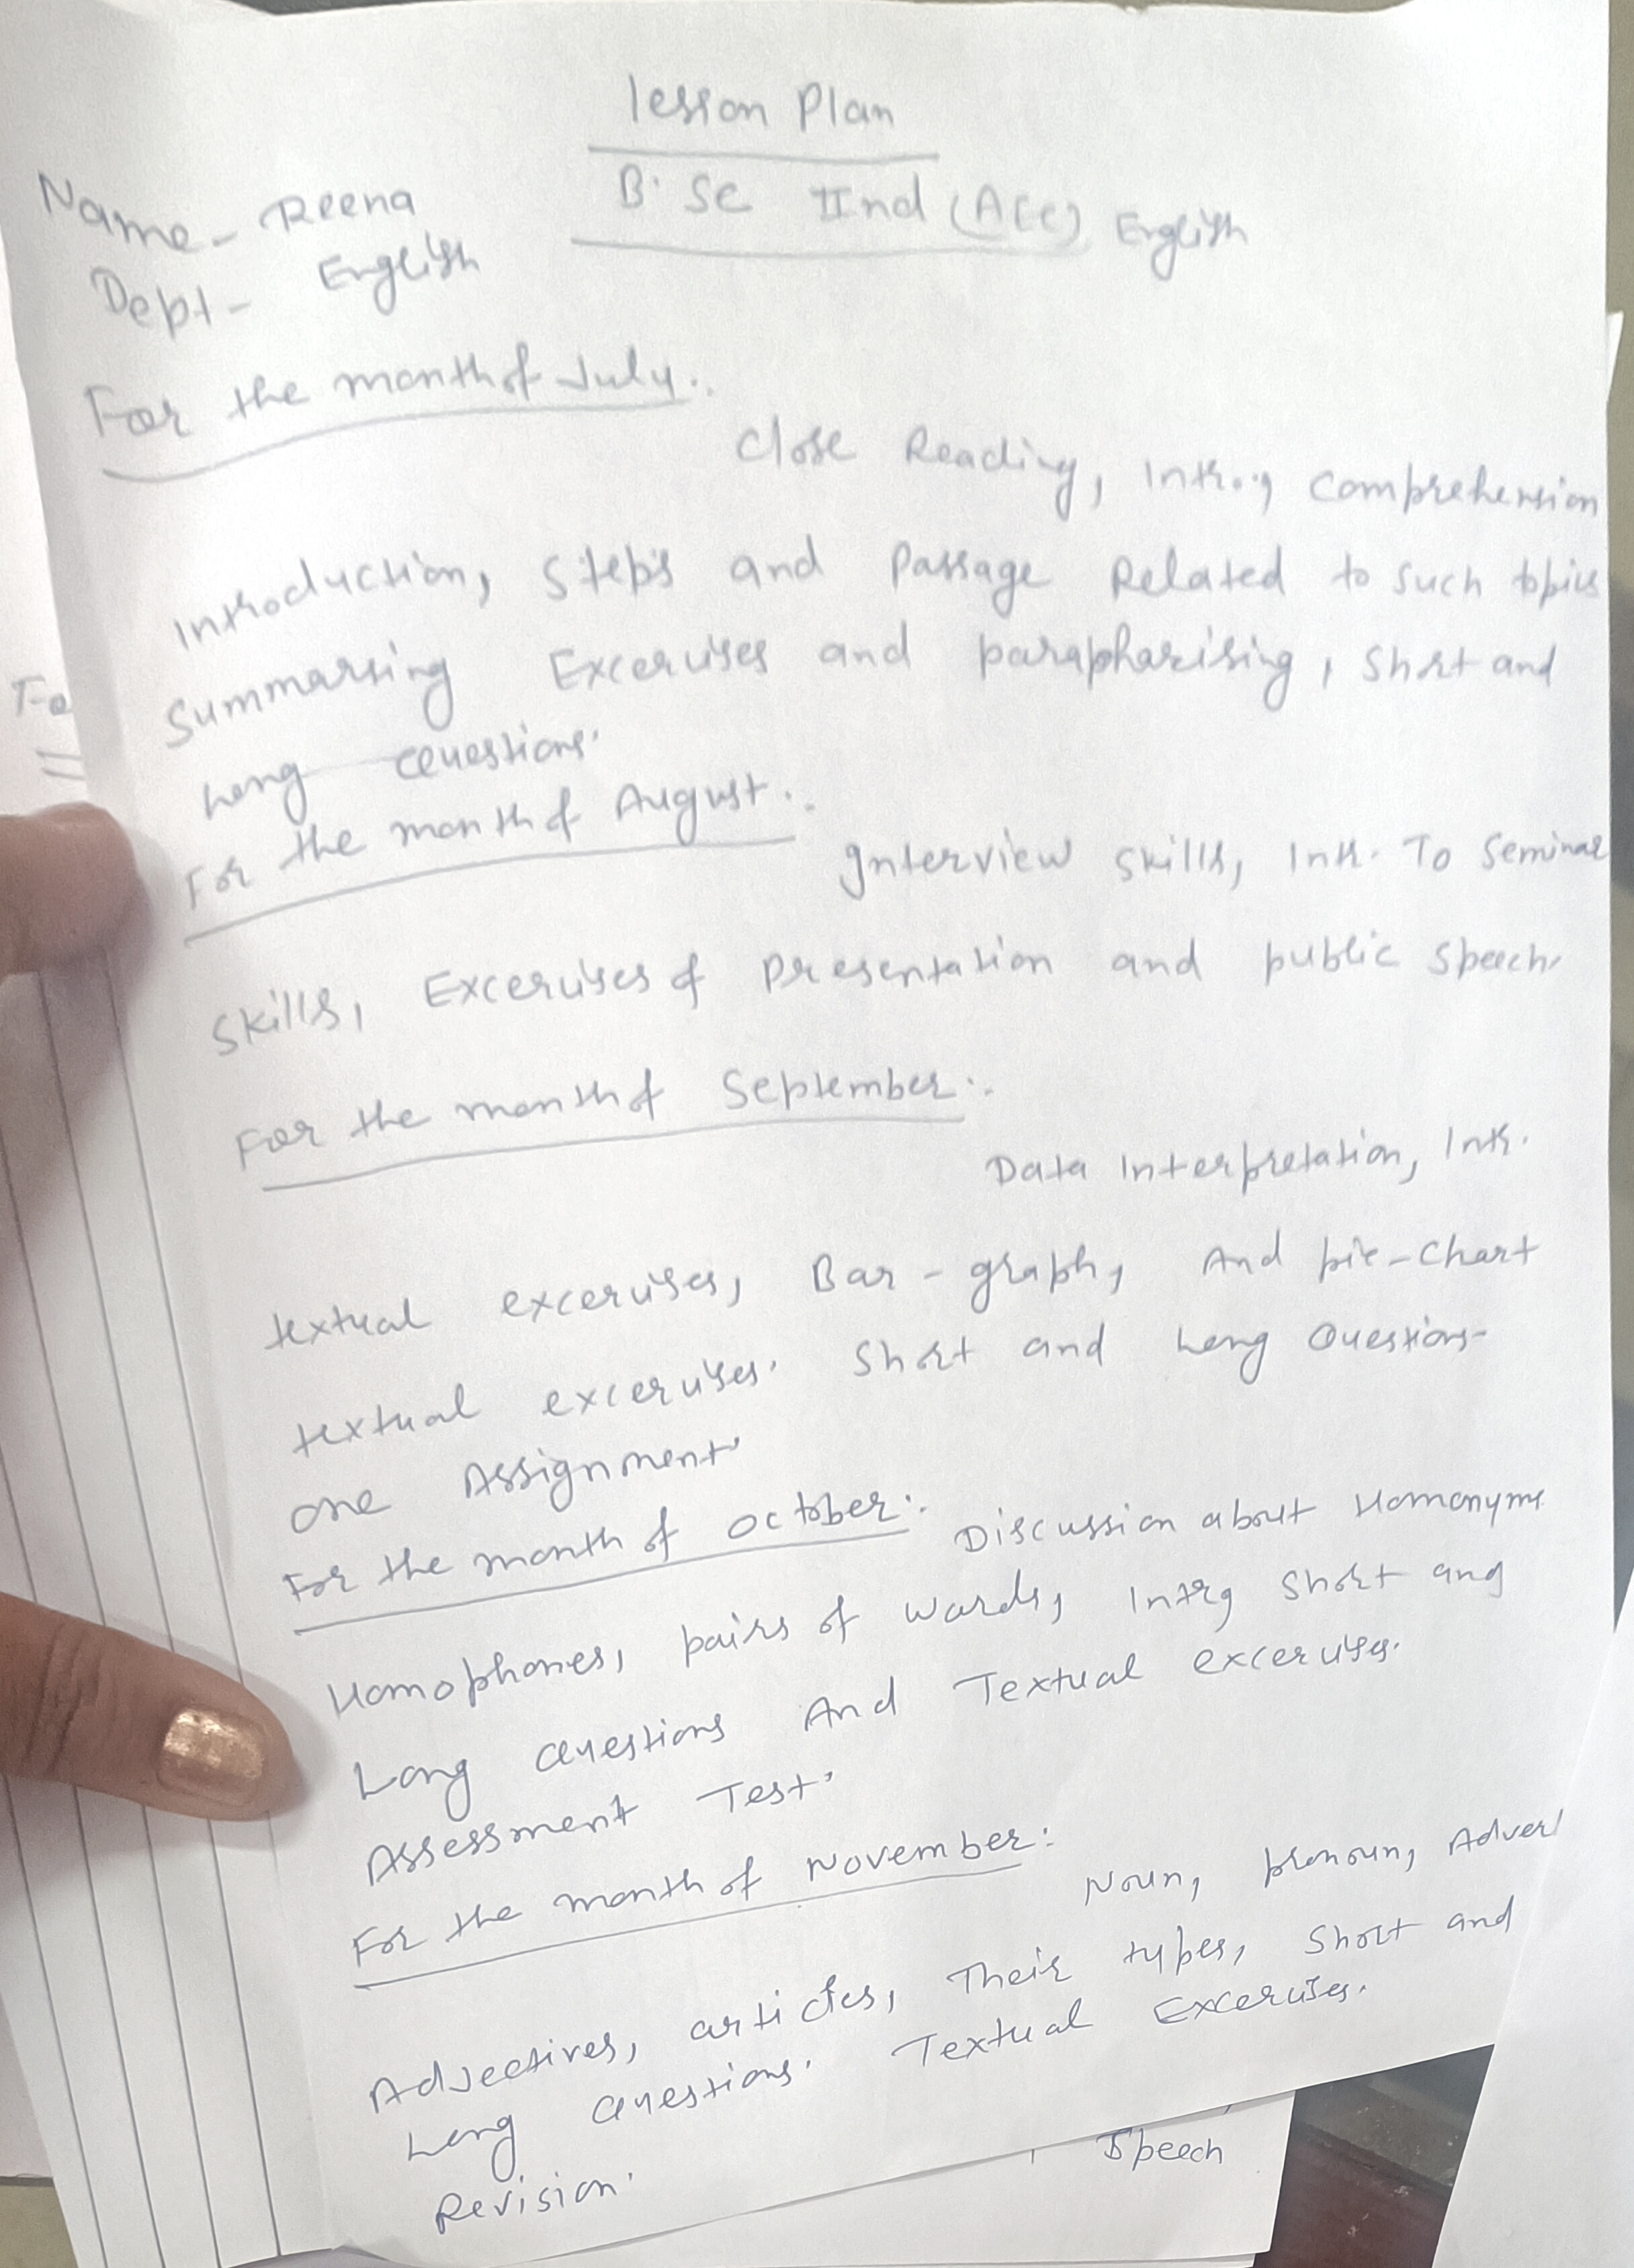 Lesson Plan
B.Sc IInd (AEC) English
Name - Reena
Dept - English
For the month of July:.
Close Reading, Intro, Comprehension
Introduction, Steps and Passage Related to such topics
Summarsing Excerises and parapharising, Short and
Long Questions.
For the month of August:.
Interview Skills, Intr. To Seminar
Skills, Excerises of Presentation and public speech.
For the month of September:.
Data Interpretation, Intr.
textual excerises, Bar-graph, And pie-chart
textual excerises. Short and Long Questions-
One Assignment.
For the month of October:.
Discussion about Homonyms
Homophones, pairs of words, Intro, Short and
Long Questions And Textual excerises.
Assessment Test.
For the month of November:
Noun, pronoun, Adver
Adjectives, articles, Their types, Short and
Long Questions. Textual Excerises.
Revision.
Fo
Speech